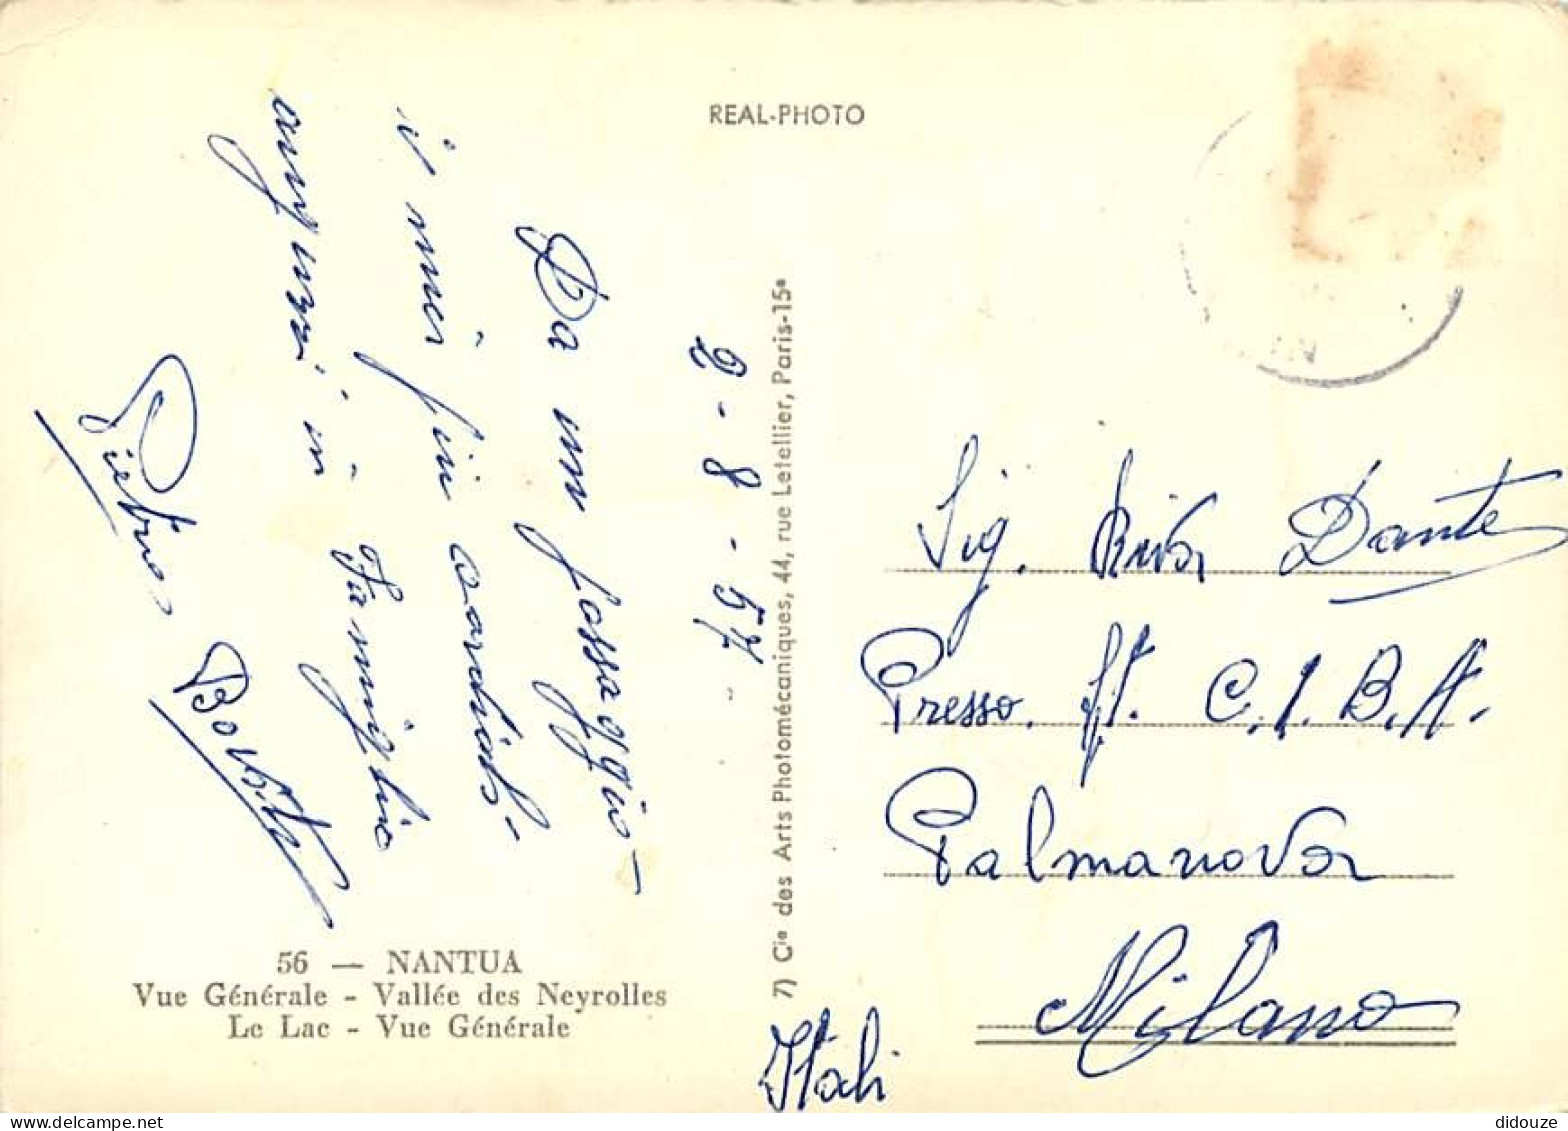 REAL-PHOTO
2 - 8 - 57 -
Da un passaggio -
i miei più cordiali -
auguri in
Famiglia
Pietro
56 — NANTUA
Vue Générale - Vallée des Neyrolles
Le Lac - Vue Générale
7) Cie des Arts Photomécaniques, 44, rue Letellier, Paris-15e
Sig. Riva Dante
Presso. C.I.B.A.
Palmanova
Milano
Itali
delcampe.net
didouze